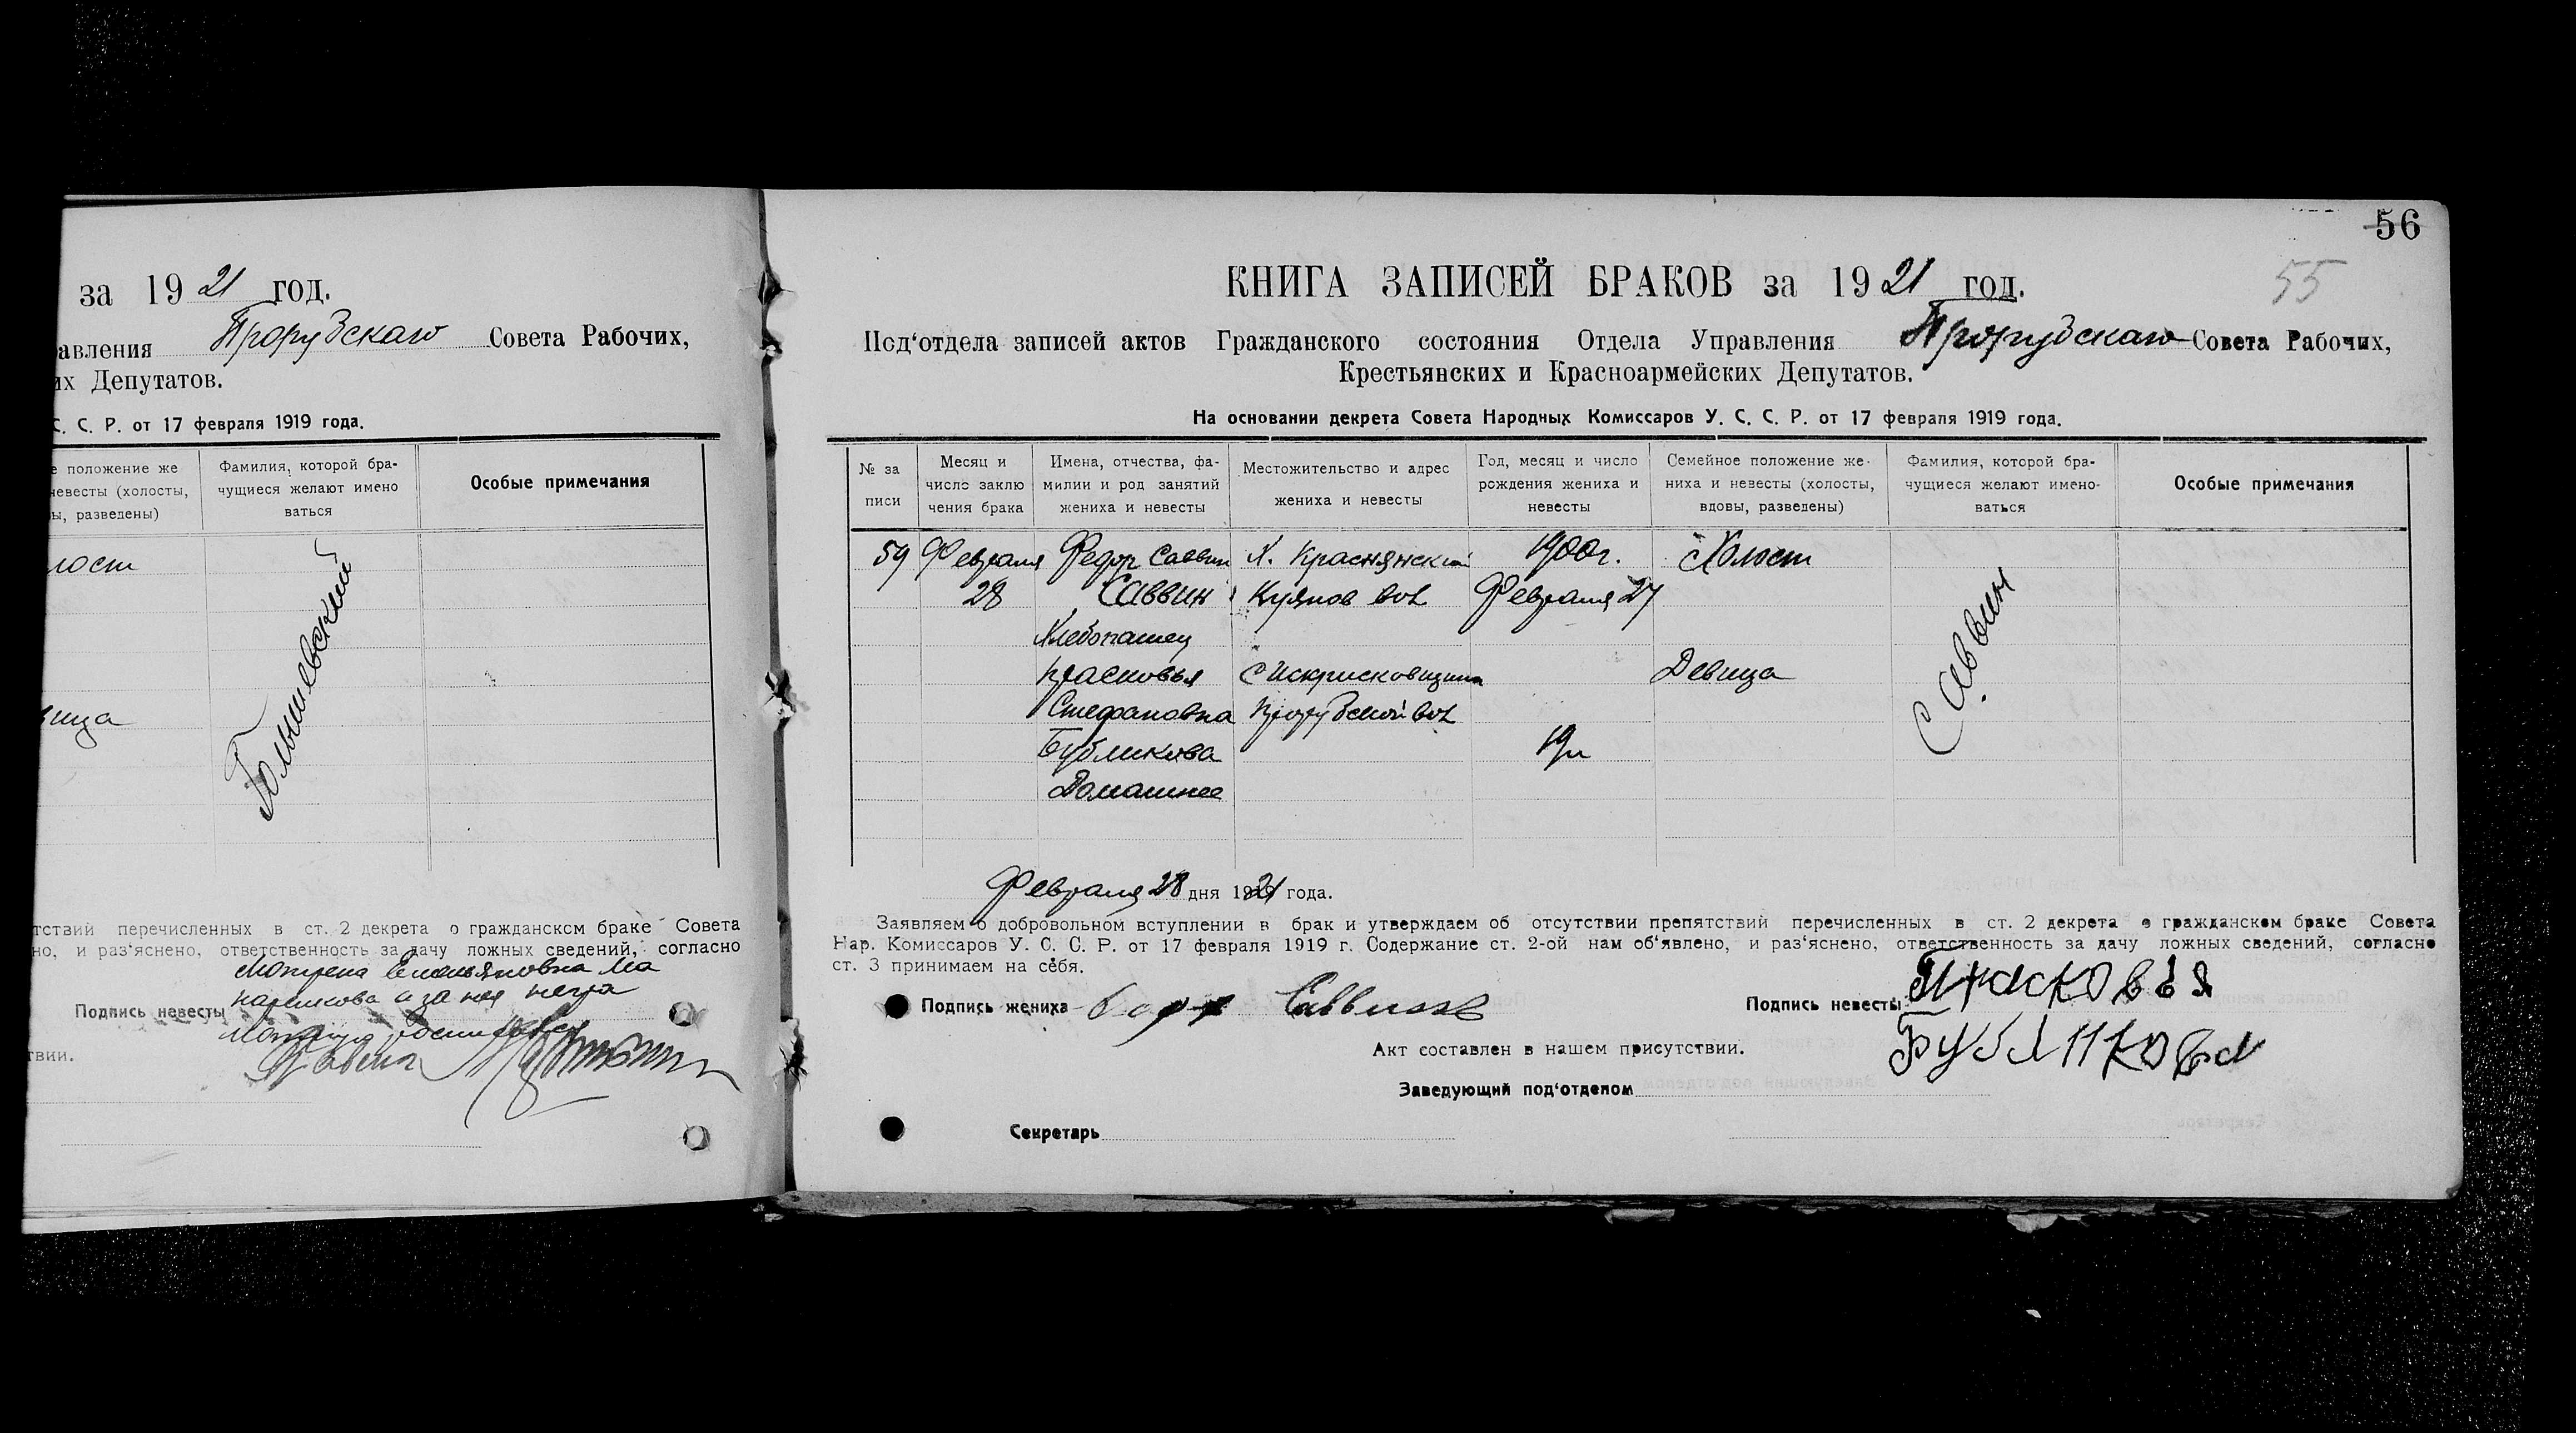 за 1921 год.
авления Прорубскаго Совета Рабочих,
их Депутатов.
С. С. Р. от 17 февраля 1919 года.
е положение же
невесты (холосты,
ы, разведены)
Фамилия, которой бра-
чущиеся желают имено
ваться
Особые примечания
лост
вица
тствий перечисленных в ст. 2 декрета о гражданском браке Совета
но, и раз'яснено, ответственность за дачу ложных сведений, согласно
Подпись невесты
твии.
56
55
КНИГА ЗАПИСЕЙ БРАКОВ за 1921 год.
Под'отдела записей актов Гражданского состояния Отдела Управления Прорубскаго Совета Рабочих,
Крестьянских и Красноармейских Депутатов.
На основании декрета Совета Народных Комиссаров У. С. С. Р. от 17 февраля 1919 года.
№ за
писи
Месяц и
число заклю
чения брака
Имена, отчества, фа-
милии и род занятий
жениха и невесты
Местожительство и адрес
жениха и невесты
Год, месяц и число
рождения жениха и
невесты
Семейное положение же-
ниха и невесты (холосты,
вдовы, разведены)
Фамилия, которой бра-
чущиеся желают имено-
ваться
Особые примечания
59 Февраля Федор Саввин Х. Краснянский 1900г. Холост
28 Саввин Куянов вол Февраля 27
Хлебопашец
Прасковья с Искрисковщина Девица
Стефановна Прорубской вол
Бубликова 19л
Домашнее
Саввин
Февраля 28 дня 1921 года.
Заявляем о добровольном вступлении в брак и утверждаем об отсутствии препятствий перечисленных в ст. 2 декрета о гражданском браке Совета
Нар. Комиссаров У. С. С. Р. от 17 февраля 1919 г. Содержание ст. 2-ой нам об'явлено, и раз'яснено, ответственность за дачу ложных сведений, согласно
ст. 3 принимаем на себя.
Подпись жениха
Подпись невесты Прасковья
Бубликова
Акт составлен в нашем присутствии.
Заведующий под'отделом
Секретарь